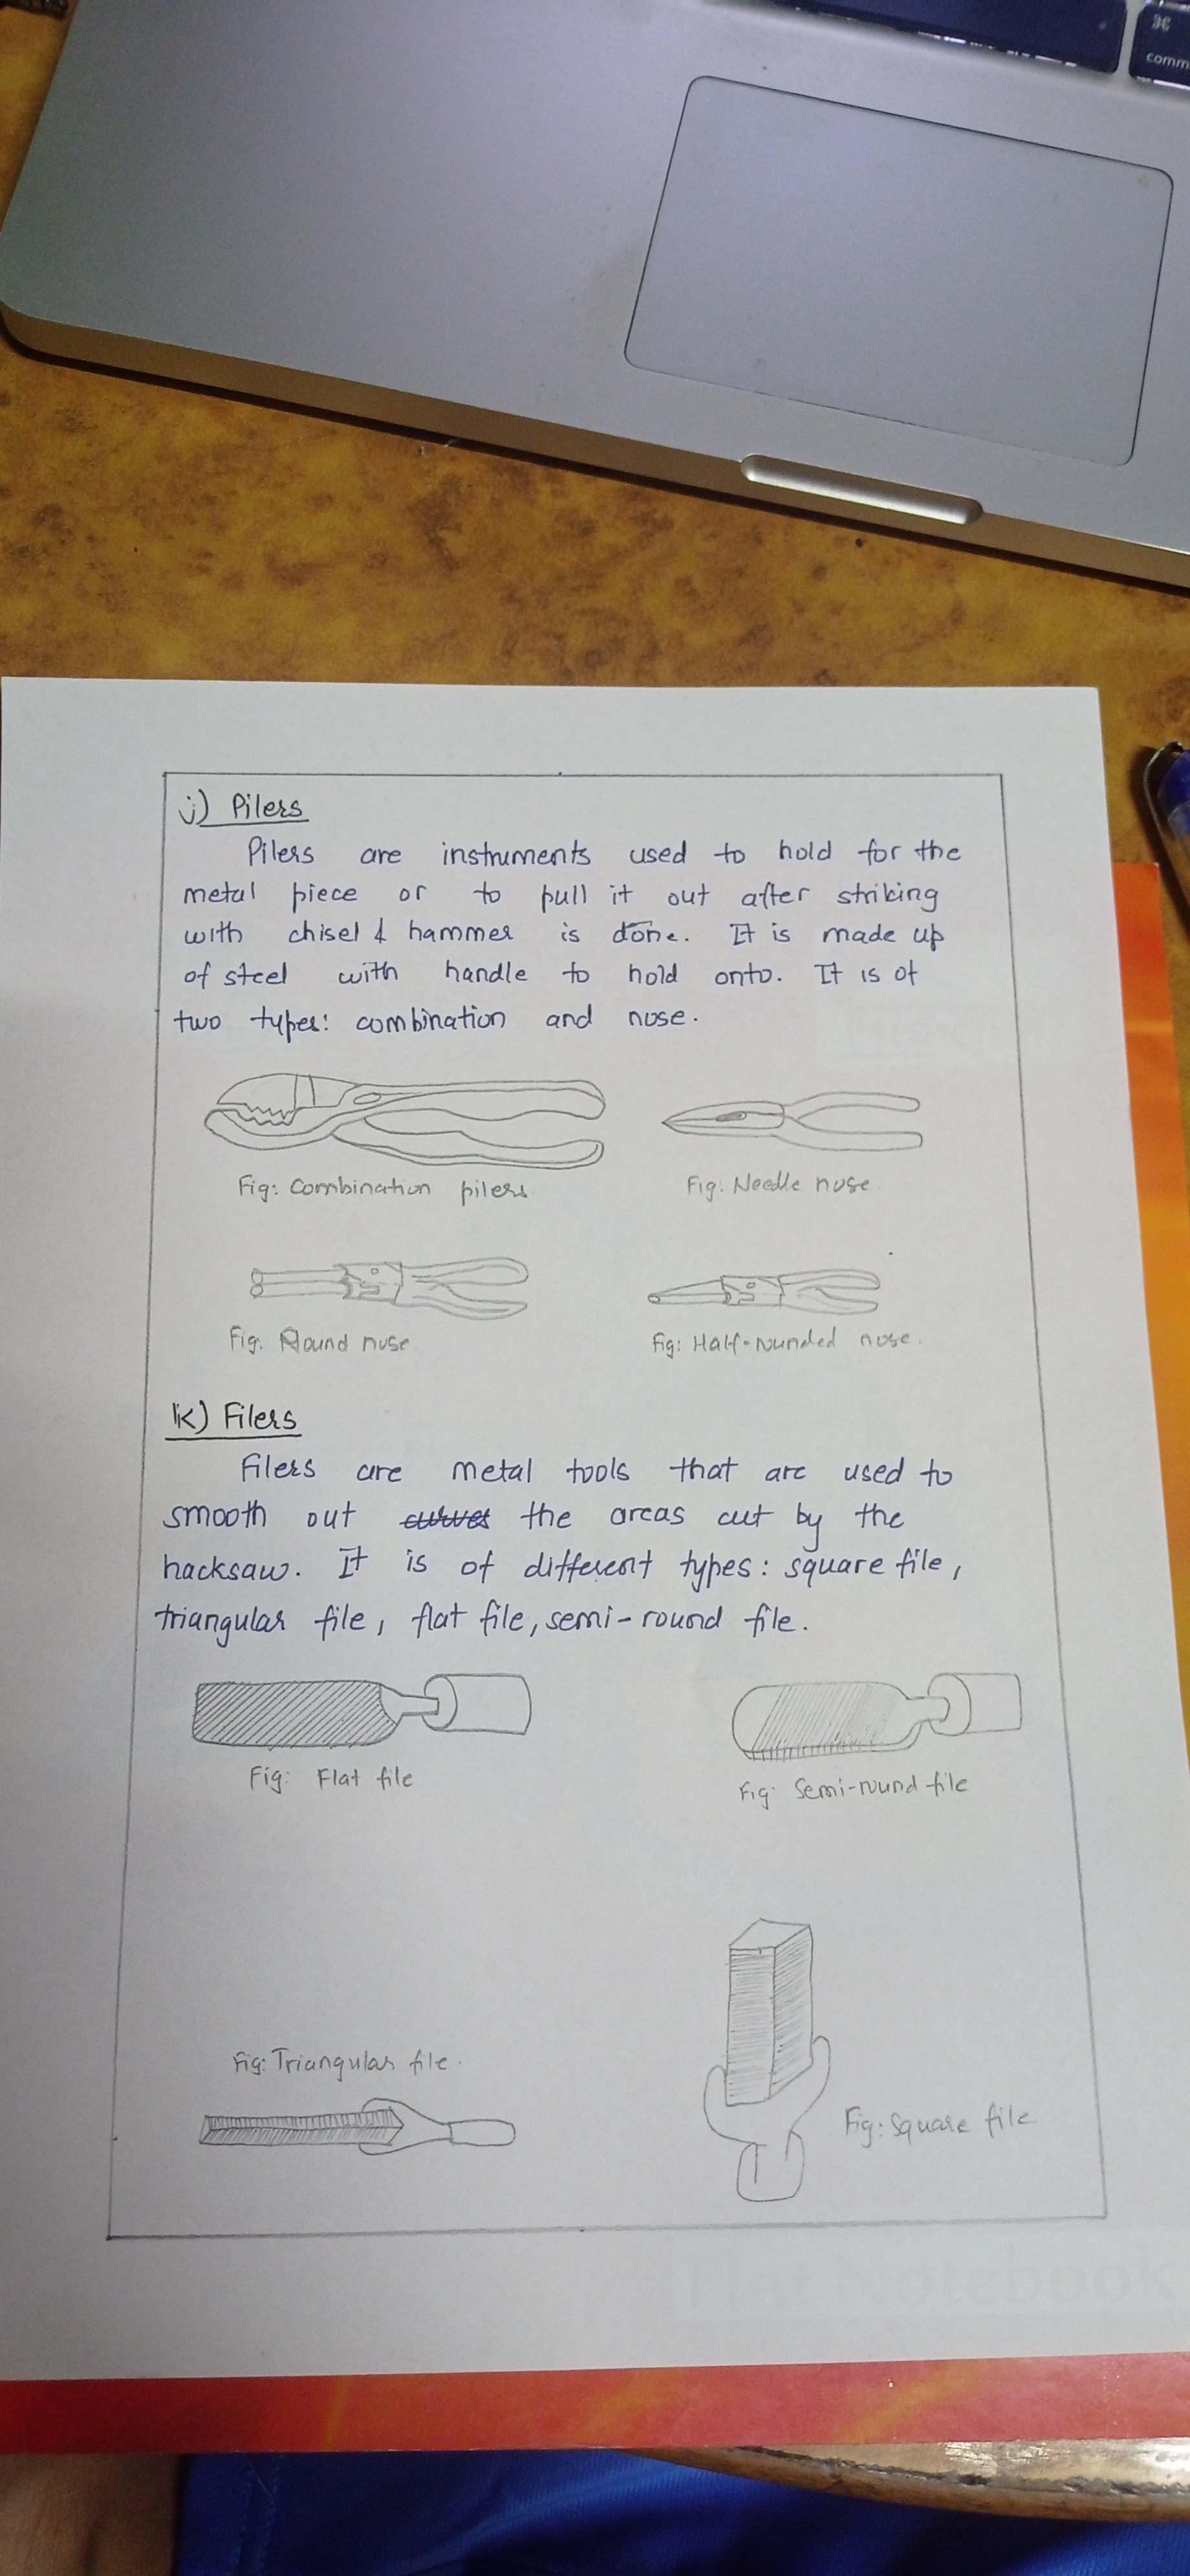 ⌘
comm
j) Pilers
Pilers are instruments used to hold for the
metal piece or to pull it out after striking
with chisel & hammer is done. It is made up
of steel with handle to hold onto. It is of
two types: combination and nose.
Fig: Combination pilers
Fig: Needle nose
Fig: Round nose
Fig: Half-rounded nose.
k) Filers
Filers are metal tools that are used to
smooth out curves the areas cut by the
hacksaw. It is of different types: square file,
triangular file, flat file, semi-round file.
Fig: Flat file
Fig: Semi-round file
Fig: Triangular file.
Fig: Square file